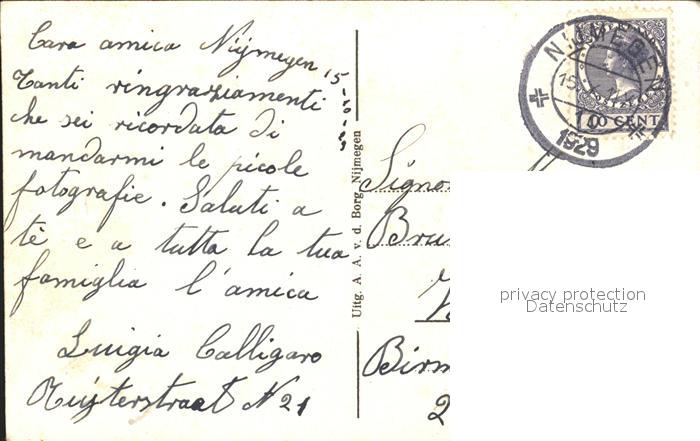 Cara amica Nijmegen 15-10-29
Tanti ringraziamenti
che sei ricordata di
mandarmi le picole
fotografie. Saluti a
tè e a tutta la tua
famiglia l'amica
Luigia Calligaro
N 21
Uitg. A. A. v. d. Borg, Nijmegen
NIJMEGEN
1929
10 CENT
Signo
Bru
Birm
2
privacy protection
Datenschutz